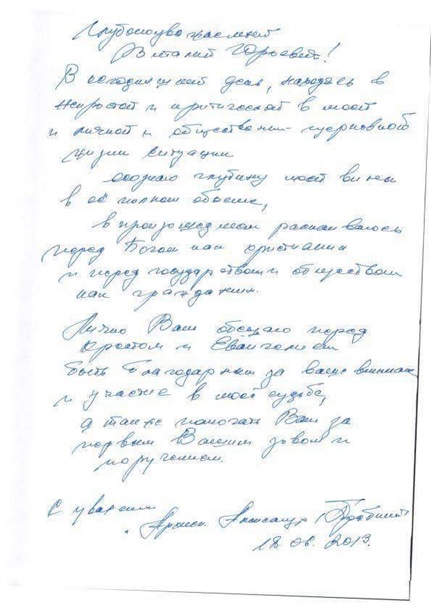 Глубокоуважаемый
Виталий Юрьевич!
В сегодняшний день, находясь в
непростой и критической в моей
и личной и общественно-церковной
жизни ситуации
осознаю глубину моей вины
в её полном объеме,
в произошедшем раскаиваюсь
перед Богом как христианин
и перед государством и обществом
как гражданин.
Лично Вам обещаю перед
Крестом и Евангелием
быть благодарным за ваше внимание
и участие в моей судьбе,
а также помогать Вам за
первым Вашим зовом и
поручением.
С уважением
Александр
18.06.2013.